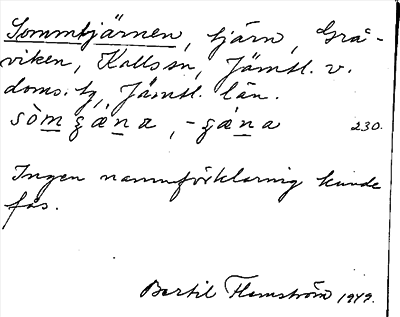 Sommtjärnen, tjärn, Grå-
viken, Kallssn, Jämtl. v.
doms. tg, Jämtl. län.
sòm̲ʒän̲a, -ʒán̲a 230.
Ingen namnförklaring kunde
fås.
Bertil Flemström 1949.